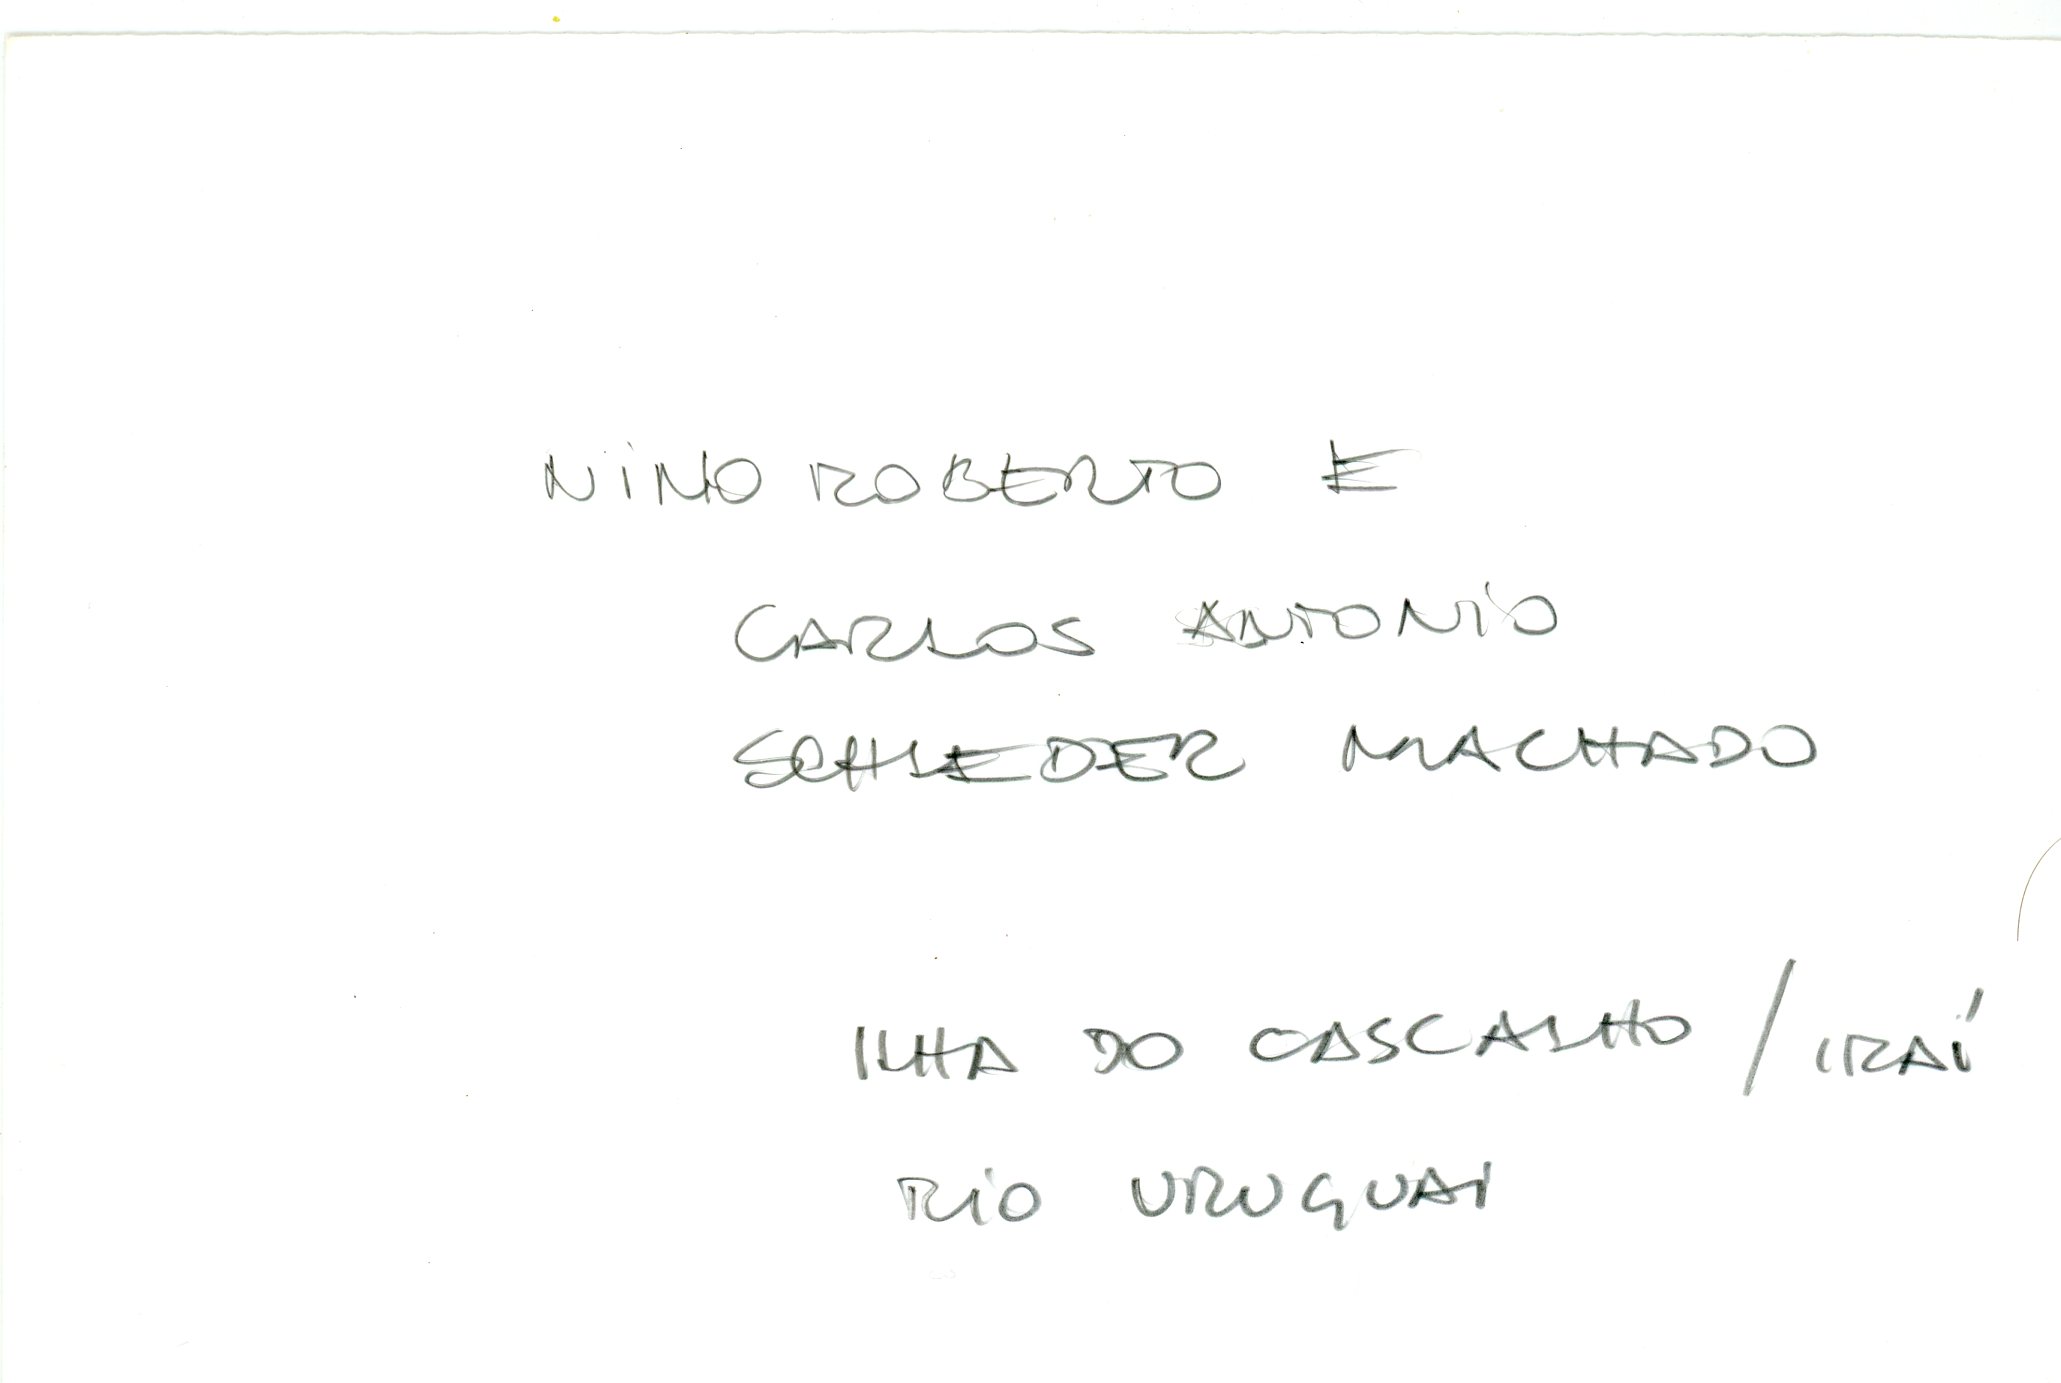 NINO ROBERTO E
CARLOS ANTONIO
SCHLEDER MACHADO
ILHA DO CASCALHO / IRAÍ
RIO URUGUAI